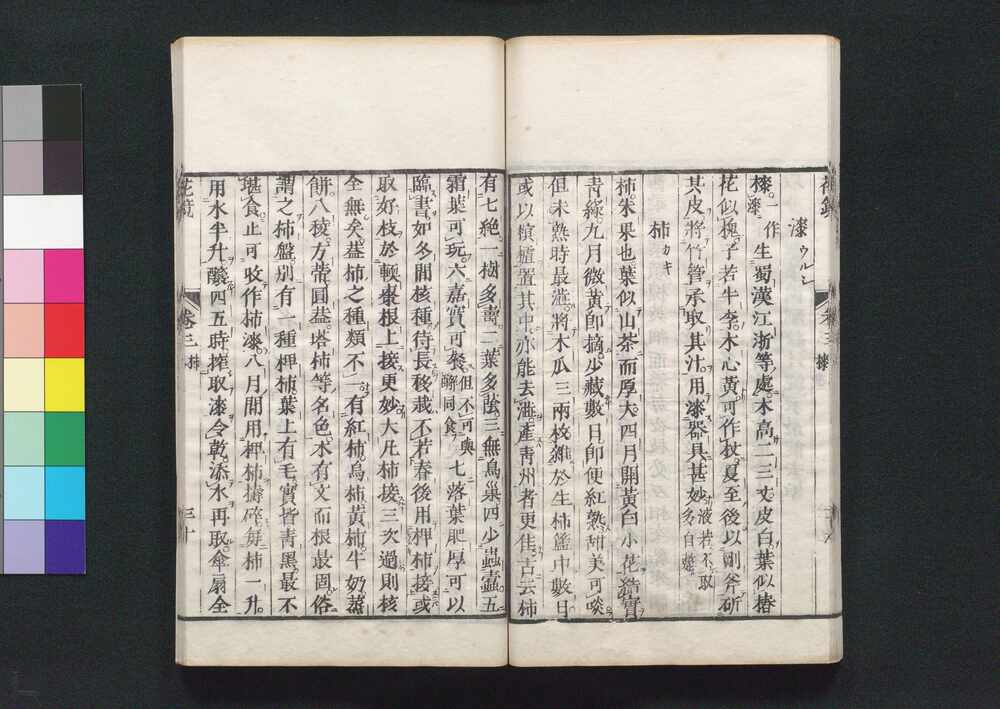 漆 ウルシ
榛。漆作 生蜀漢江浙等處。木高二三丈。皮白葉似椿
花似槐。子若牛李。木心黃。可作杖。夏至後以剛斧斫
其皮。將竹管承取其汁。用漆器具甚妙。液若不取多自斃。
柿 カキ
柿。朱果也。葉似山茶而厚大。四月開黃白小花。結實
青綠。九月微黃。即摘少藏數日。即便紅熟。甜美可啖。
但未熟時最澁。將木瓜三兩枚。雜於生柿籃中數日。
或以榠樝置其中。亦能去澁。產青州者更佳。古云柿
有七絕。一樹多壽。二葉多蔭。三無鳥巢。四少蟲蠧。五
霜葉可玩。六嘉實可餐。但不可與蟹同食 七落葉肥厚。可以
臨書。如冬間核種。待長移栽。不若春後用椑柿接。或
取好枝於軟棗根上接更妙。大凡柿接三次。過則核
全無矣。蓋柿之種類不一。有紅柿。烏柿。黃柿。牛奶。蒸
餅。八稜。方蒂。圓蓋。塔柿等名色。木有文而根最固。俗
謂之柿盤。別有一種椑柿。葉上有毛。實皆青黑。最不
堪食。止可收作柿漆。八月間用椑柿擣碎。每柿一升。
用水半升。釀四五時。榨取漆令乾。添水再取。傘扇全
花鏡 卷三 三十